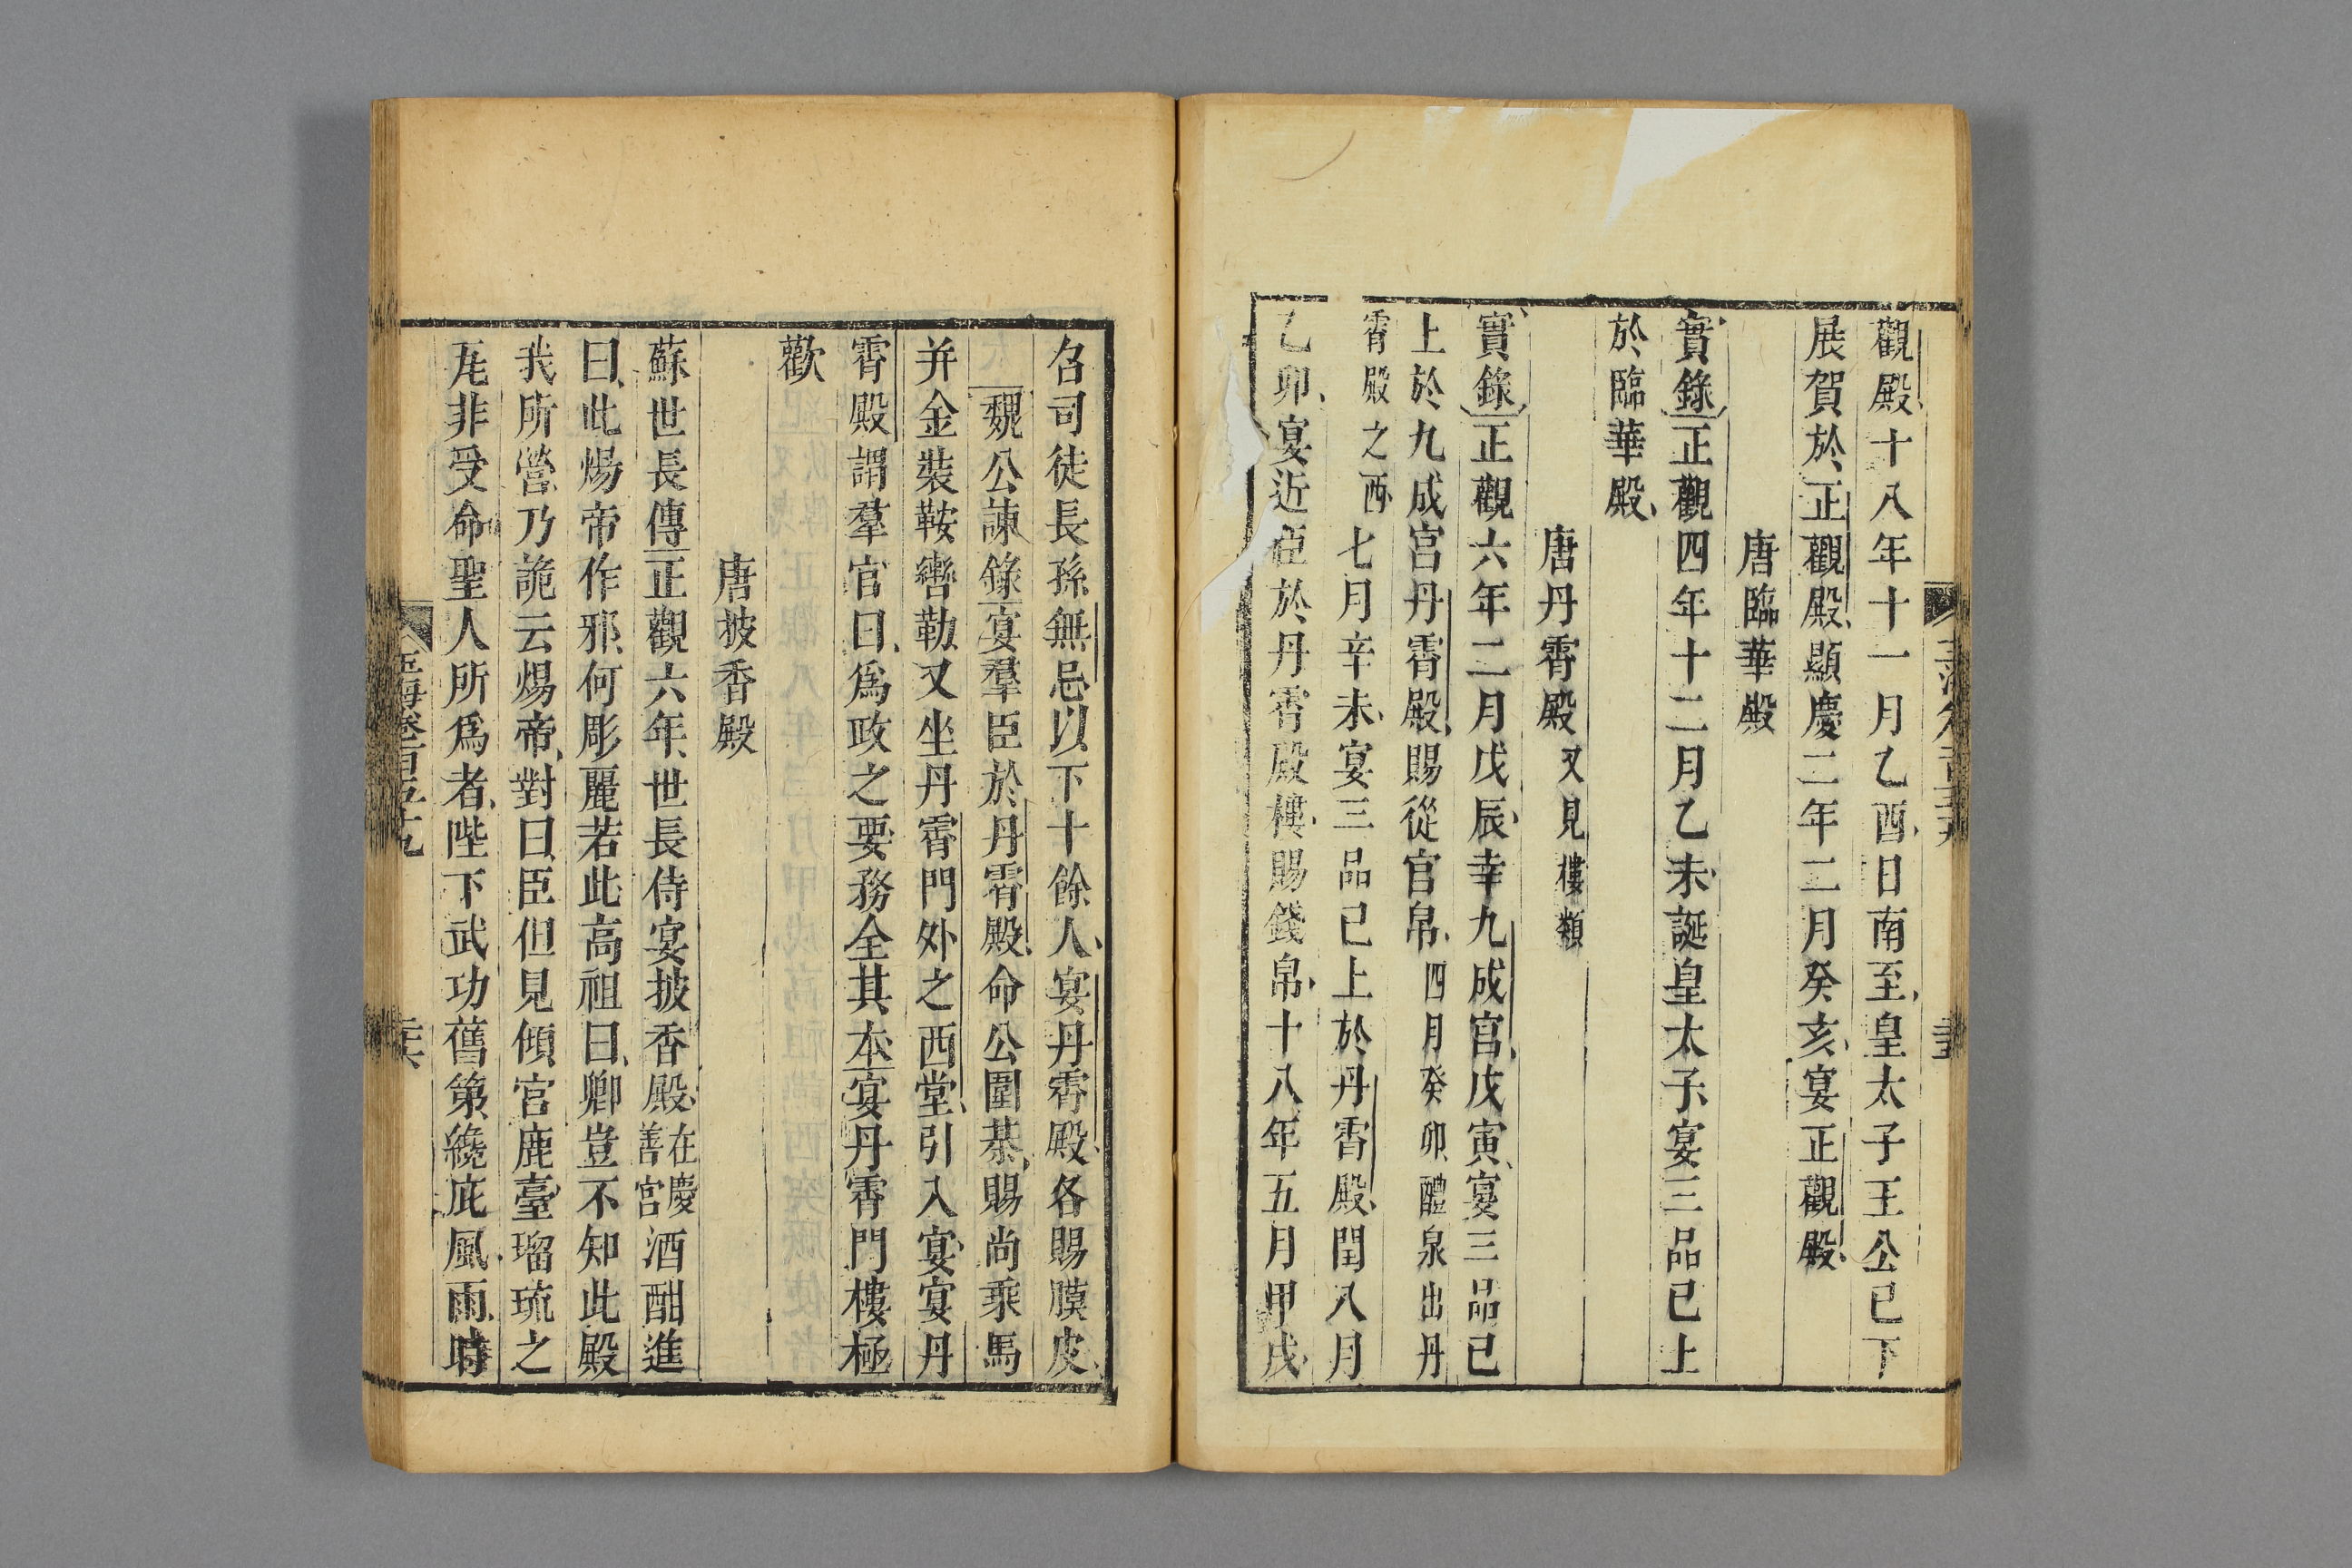 觀殿十八年十一月乙酉日南至皇太子王公已下
展賀於正觀殿顯慶二年二月癸亥宴正觀殿
唐臨華殿
實錄正觀四年十二月乙未誕皇太子宴三品已上
於臨華殿
唐丹霄殿又見樓類
實錄正觀六年二月戊辰幸九成宫戊寅宴三品已
上於九成宫丹霄殿賜從官帛四月癸卯醴泉出丹
霄殿之西七月辛未宴三品已上於丹霄殿閏八月
乙卯宴近臣於丹霄殿樓賜錢帛十八年五月甲戌
召司徒長孫無忌以下十餘人宴丹霄殿各賜膜皮
魏公諫錄宴羣臣於丹霄殿命公圍棊賜尚乘馬
并金裝鞍轡勒又坐丹霄門外之西堂引入宴宴丹
霄殿謂羣官曰爲政之要務全其本宴丹霄門樓極
歡
唐披香殿
蘇世長傳正觀六年世長侍宴披香殿在慶善宫酒酣進
曰此煬帝作邪何彫麗若此高祖曰卿豈不知此殿
我所營乃詭云煬帝對曰臣但見傾宫鹿臺瑠琉之
瓦非受命聖人所爲者陛下武功舊第纔庇風雨時
玉海卷一百五十九